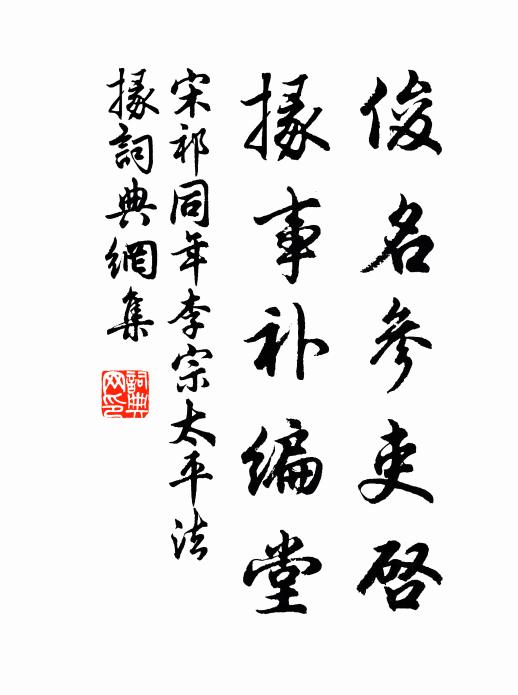 俊名參吏啓
掾事补編堂
宋祁同年李宗太平法
掾詞典網集
詞典
网印